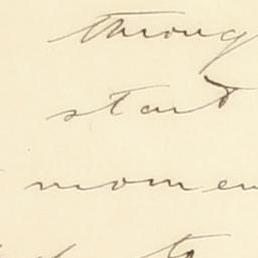 throug
start
momen